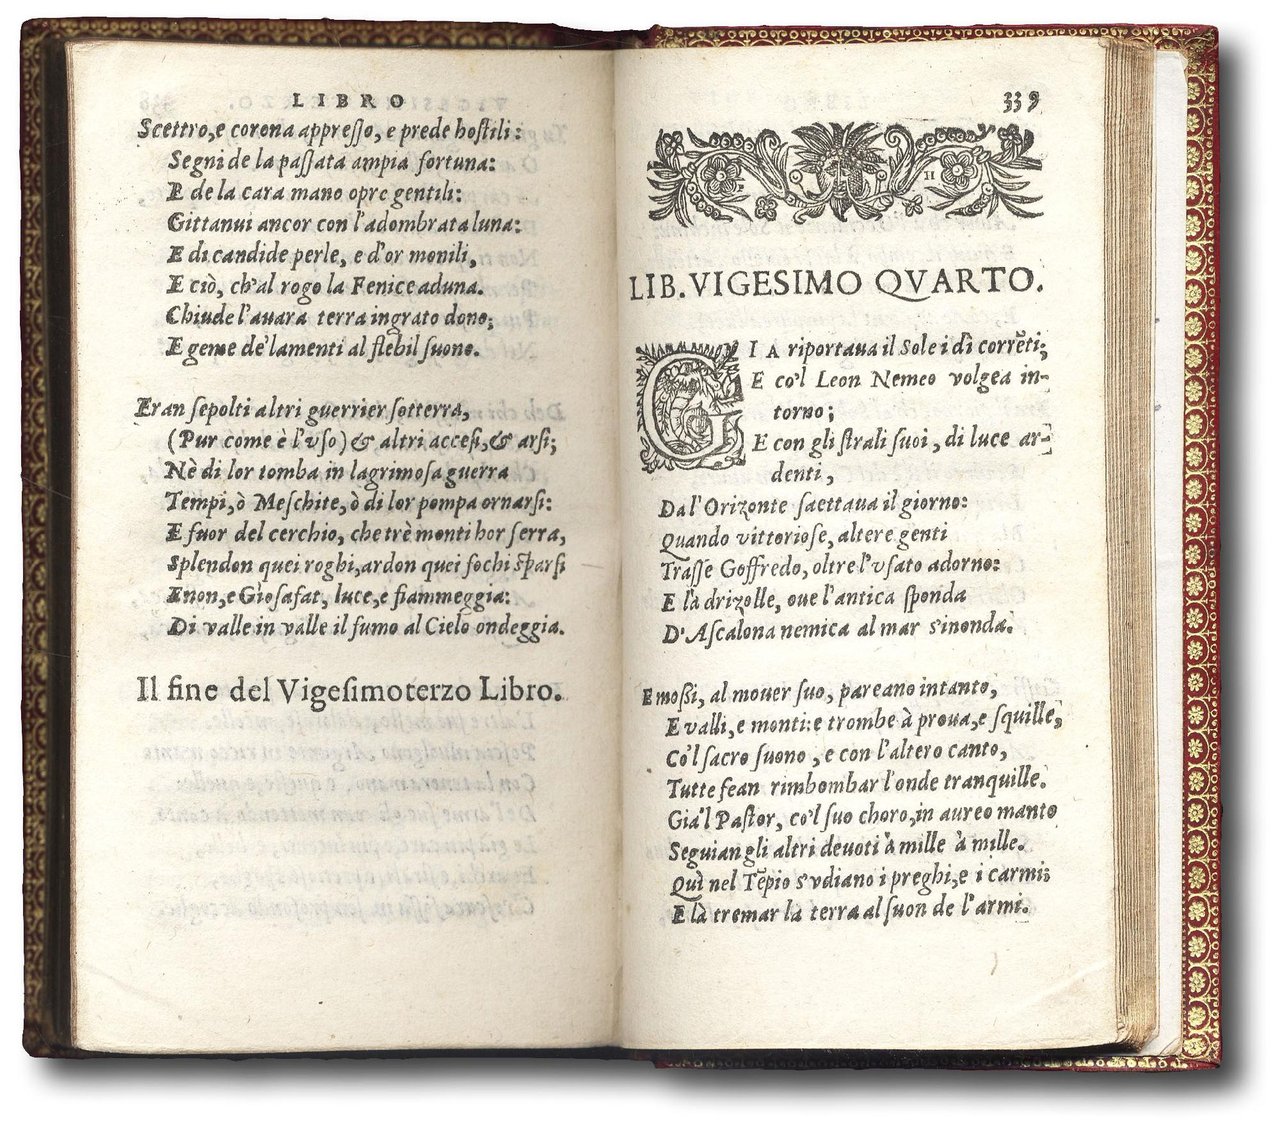 LIBRO
Scettro, e corona appresso, e prede hostili:
Segni de la passata ampia fortuna:
E de la cara mano opre gentili:
Gittanui ancor con l'adombrata luna:
E di candide perle, e d'or monili,
E ciò, ch'al rogo la Fenice aduna.
Chiude l'auara terra ingrato dono;
E geme de' lamenti al flebil suono.
Eran sepolti altri guerrier sotterra,
(Pur come è l'vso) & altri accesi, & arsi;
Nè di lor tomba in lagrimosa guerra
Tempi, ò Meschite, ò di lor pompa ornarsi:
E fuor del cerchio, che trè monti hor serra,
Splendon quei roghi, ardon quei fochi sparsi
Enon, e Giosafat, luce, e fiammeggia:
Di valle in valle il fumo al Cielo ondeggia.
Il fine del Vigesimoterzo Libro.
339
F H
LIB. VIGESIMO QVARTO.
GIA riportaua il Sole i dì corrēti;
E co'l Leon Nemeo volgea in-
torno;
E con gli strali suoi, di luce ar-
denti,
Dal' Orizonte saettaua il giorno:
Quando vittoriose, altere genti
Trasse Goffredo, oltre l'vsato adorno:
E là drizolle, oue l'antica sponda
D'Ascalona nemica al mar s'inonda.
E mossi, al mouer suo, pareano intanto,
E valli, e monti: e trombe à proua, e squille,
Co'l sacro suono, e con l'altero canto,
Tutte fean rimbombar l'onde tranquille.
Già'l Pastor, co'l suo choro, in aureo manto
Seguian gli altri deuoti à mille à mille.
Quì nel Tēpio s'vdiano i preghi, e i carmi;
E là tremar la terra al suon de l'armi.